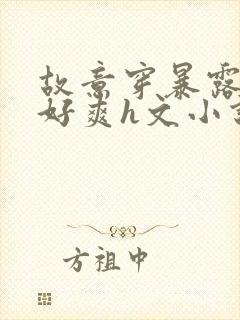 故意穿暴露
好爽h文小
方祖中